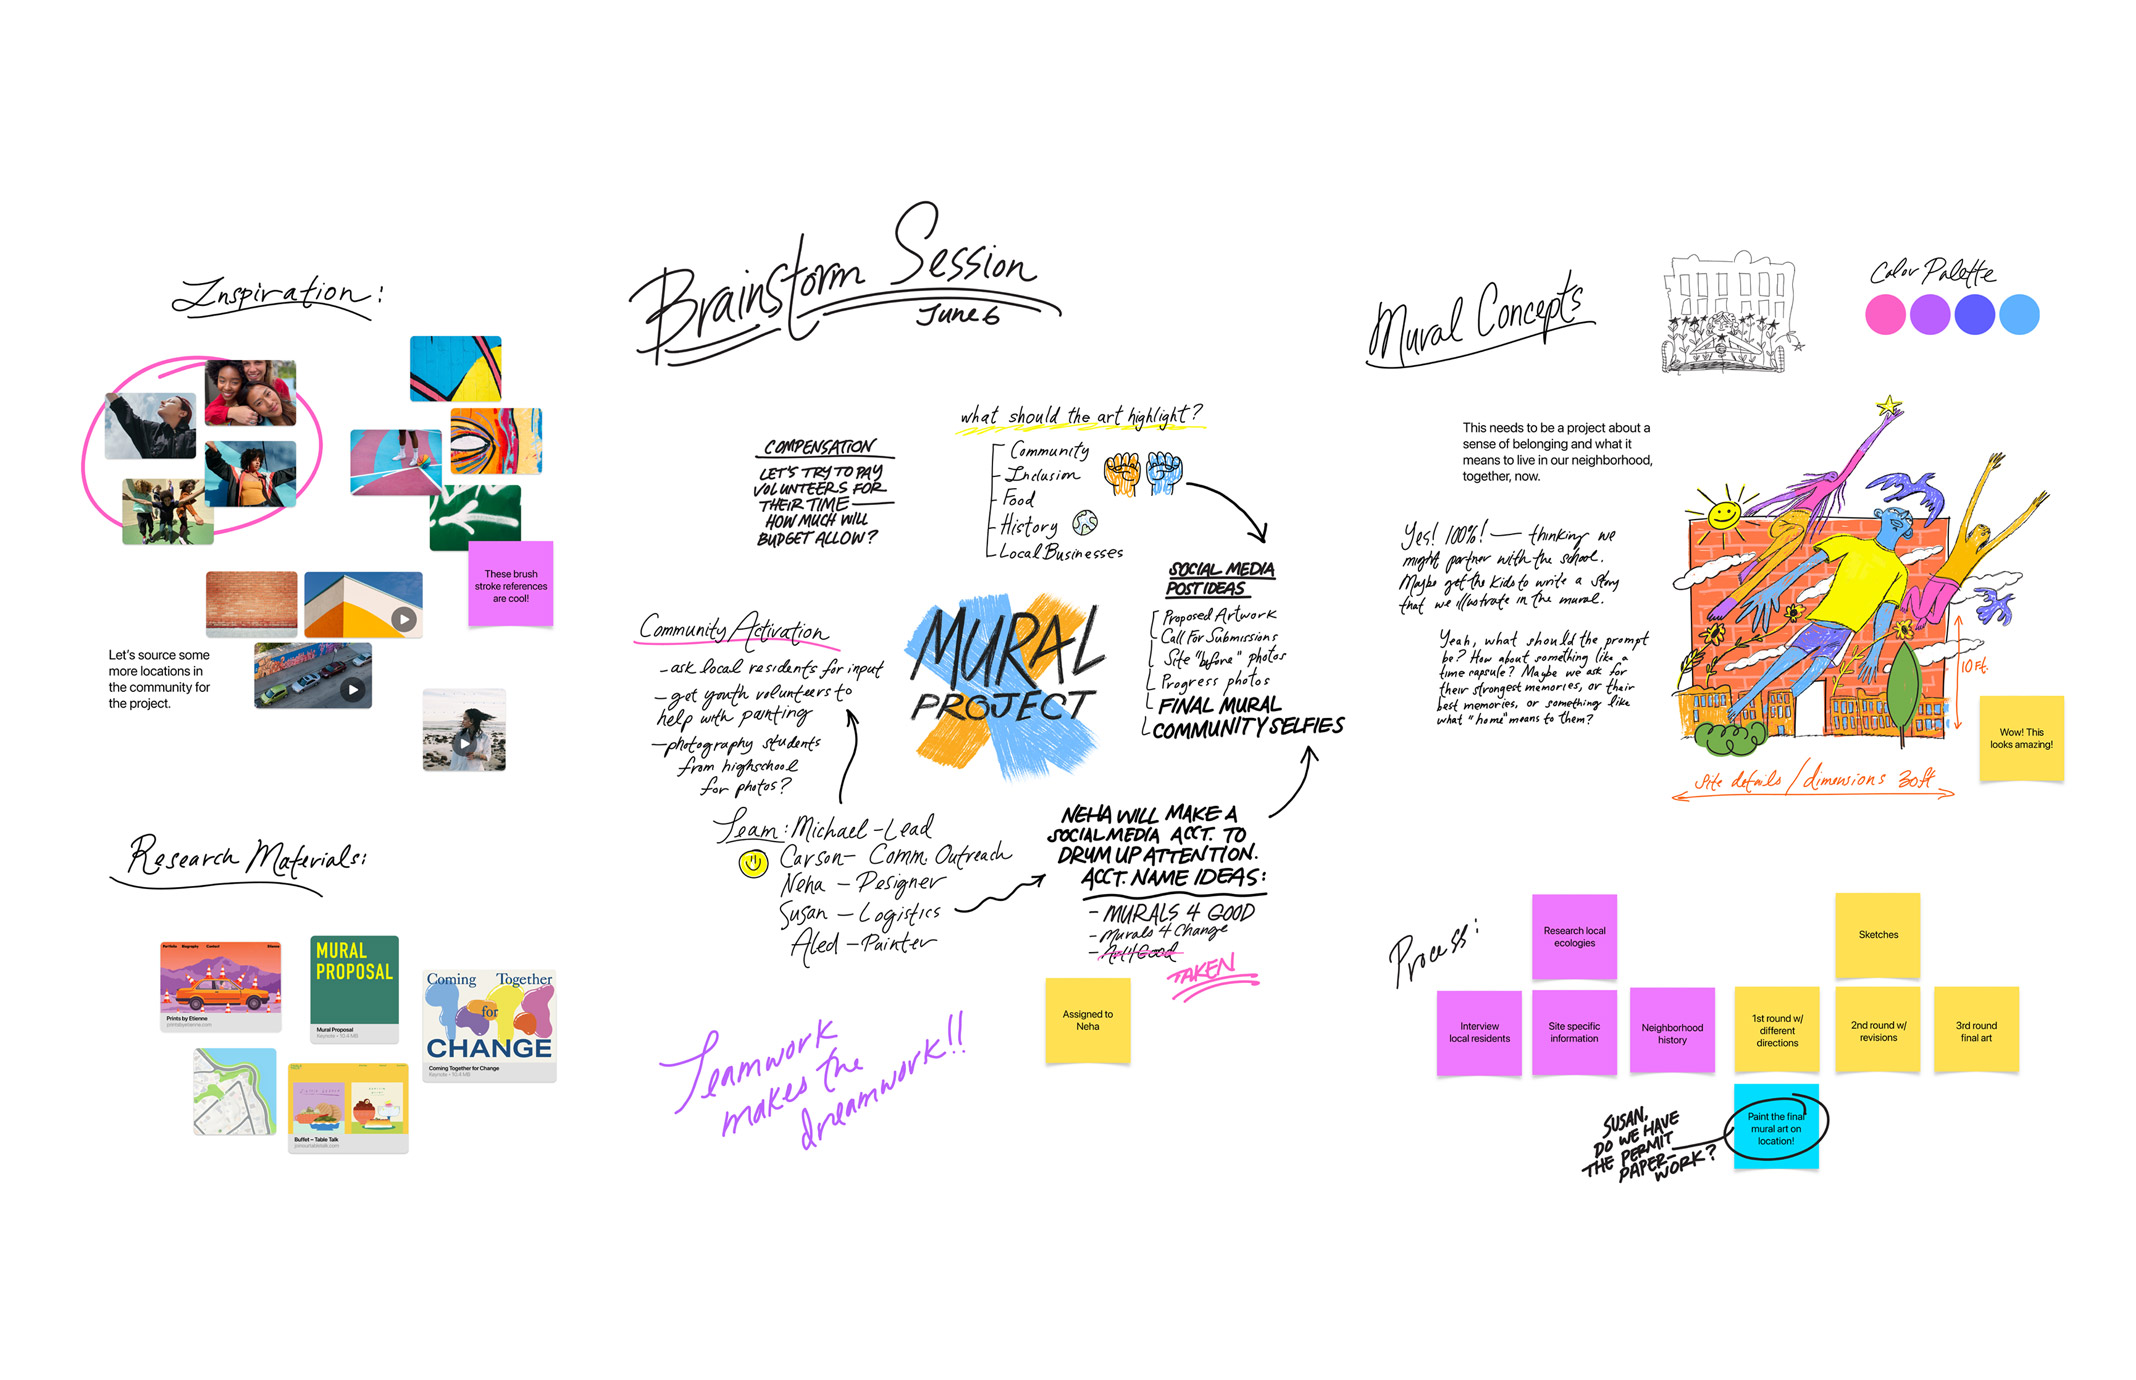 Inspiration:
These brush
stroke references
are cool!
Let's source some
more locations in
the community for
the project.
Research Materials:
Portfolio Biography Contact Etienne
Prints by Etienne
printsbyetienne.com
MURAL
PROPOSAL
Mural Proposal
Keynote • 10.4 MB
Coming Together
for
CHANGE
Coming Together for Change
Keynote • 10.4 MB
Buffet – Table Talk
joinourtabletalk.com
Brainstorm Session
June 6
COMPENSATION
LET'S TRY TO PAY
VOLUNTEERS FOR
THEIR TIME —
HOW MUCH WILL
BUDGET ALLOW?
what should the art highlight?
- Community
- Inclusion
- Food
- History
- Local Businesses
SOCIAL MEDIA
POST IDEAS
Proposed Artwork
Call For Submissions
Site "before" photos
Progress photos
FINAL MURAL
COMMUNITY SELFIES
Community Activation
- ask local residents for input
- get youth volunteers to
help with painting
- photography students
from highschool
for photos?
MURAL
PROJECT
Team: Michael - Lead
Carson - Comm. Outreach
Neha - Designer
Susan - Logistics
Aled - Painter
NEHA WILL MAKE A
SOCIAL MEDIA ACCT. TO
DRUM UP ATTENTION.
ACCT. NAME IDEAS:
- MURALS 4 GOOD
- Murals 4 Change
- Art 4 Good
TAKEN
Assigned to
Neha
Teamwork
makes the
dreamwork!!
Mural Concepts
Color Palette
This needs to be a project about a
sense of belonging and what it
means to live in our neighborhood,
together, now.
Yes! 100%! — thinking we
might partner with the school.
Maybe get the kids to write a story
that we illustrate in the mural.
Yeah, what should the prompt
be? How about something like a
time capsule? Maybe we ask for
their strongest memories, or their
best memories, or something like
what "home" means to them?
10 Ft.
Site details / dimensions 30ft
Wow! This
looks amazing!
Process:
Research local
ecologies
Interview
local residents
Site specific
information
Neighborhood
history
Sketches
1st round w/
different
directions
2nd round w/
revisions
3rd round
final art
Paint the final
mural art on
location!
SUSAN,
DO WE HAVE
THE PERMIT
PAPER-
WORK?